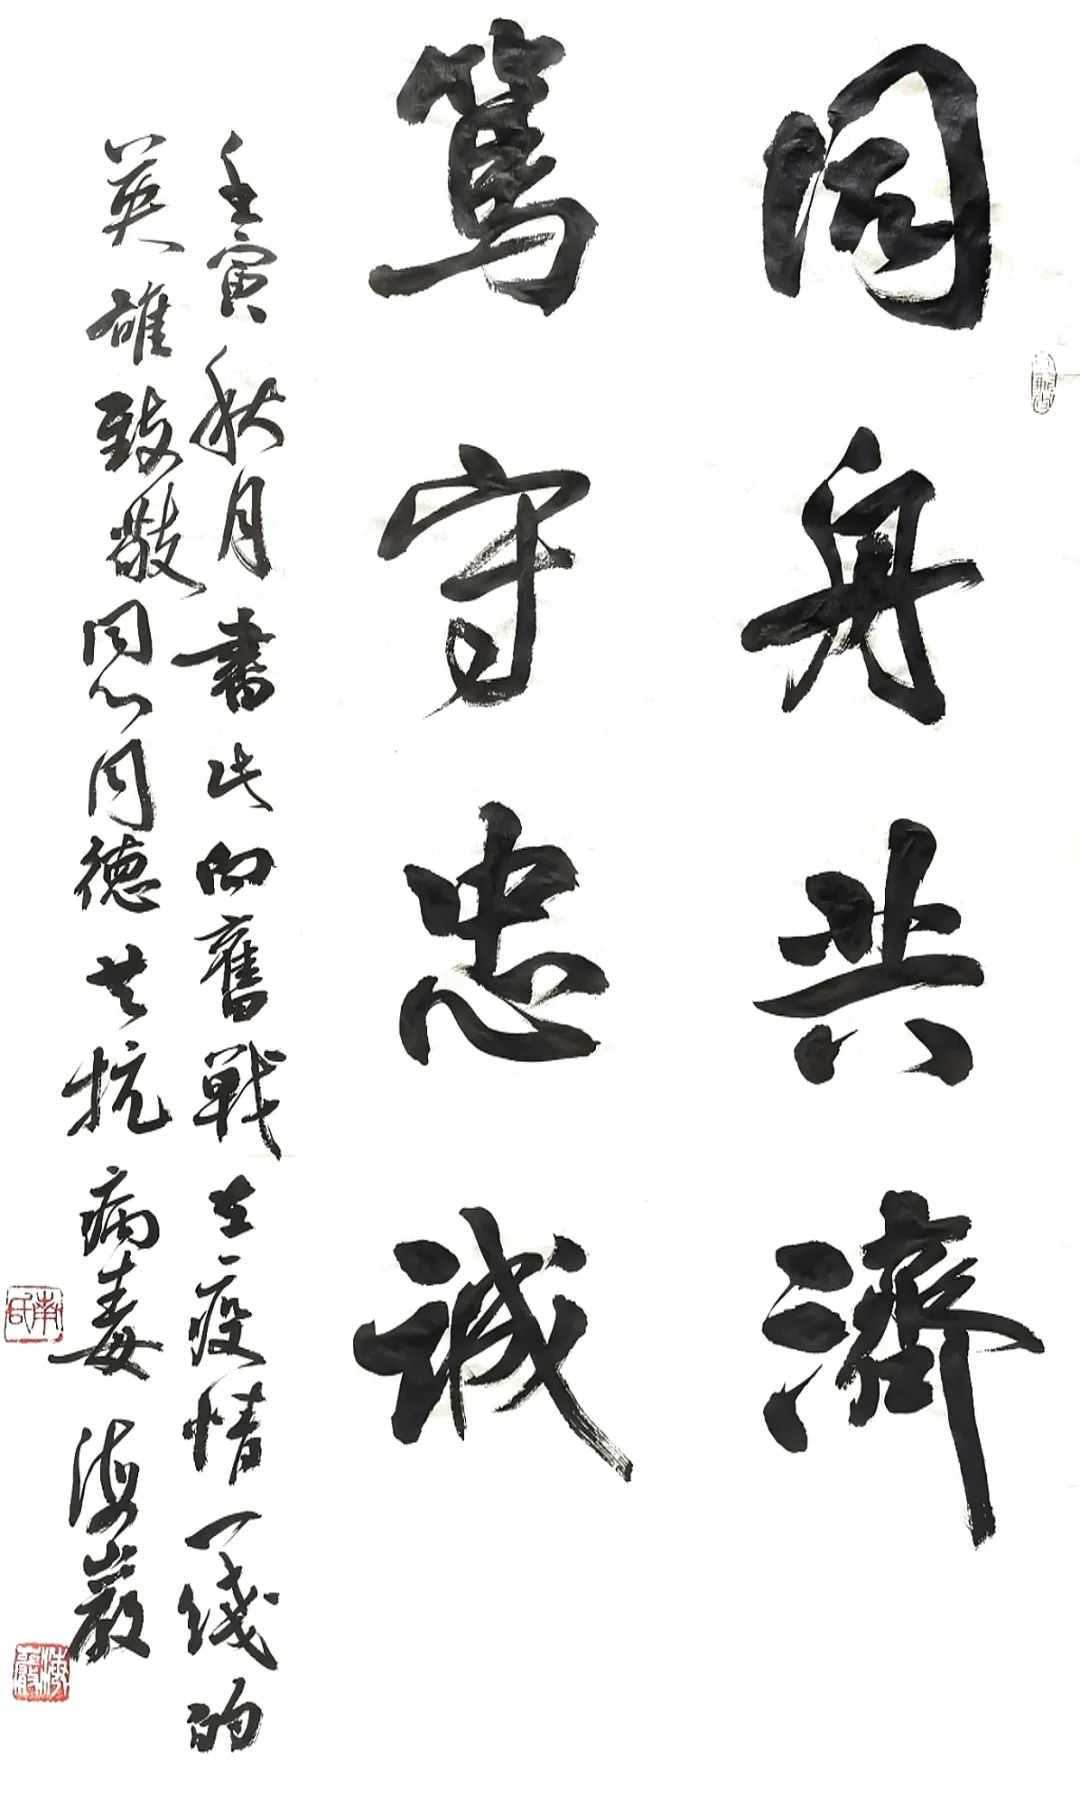 同舟共濟
篤守忠誠
壬寅秋月書此向奮戰在疫情一綫的
英雄致敬同心同德共抗病毒 海巖
海巖